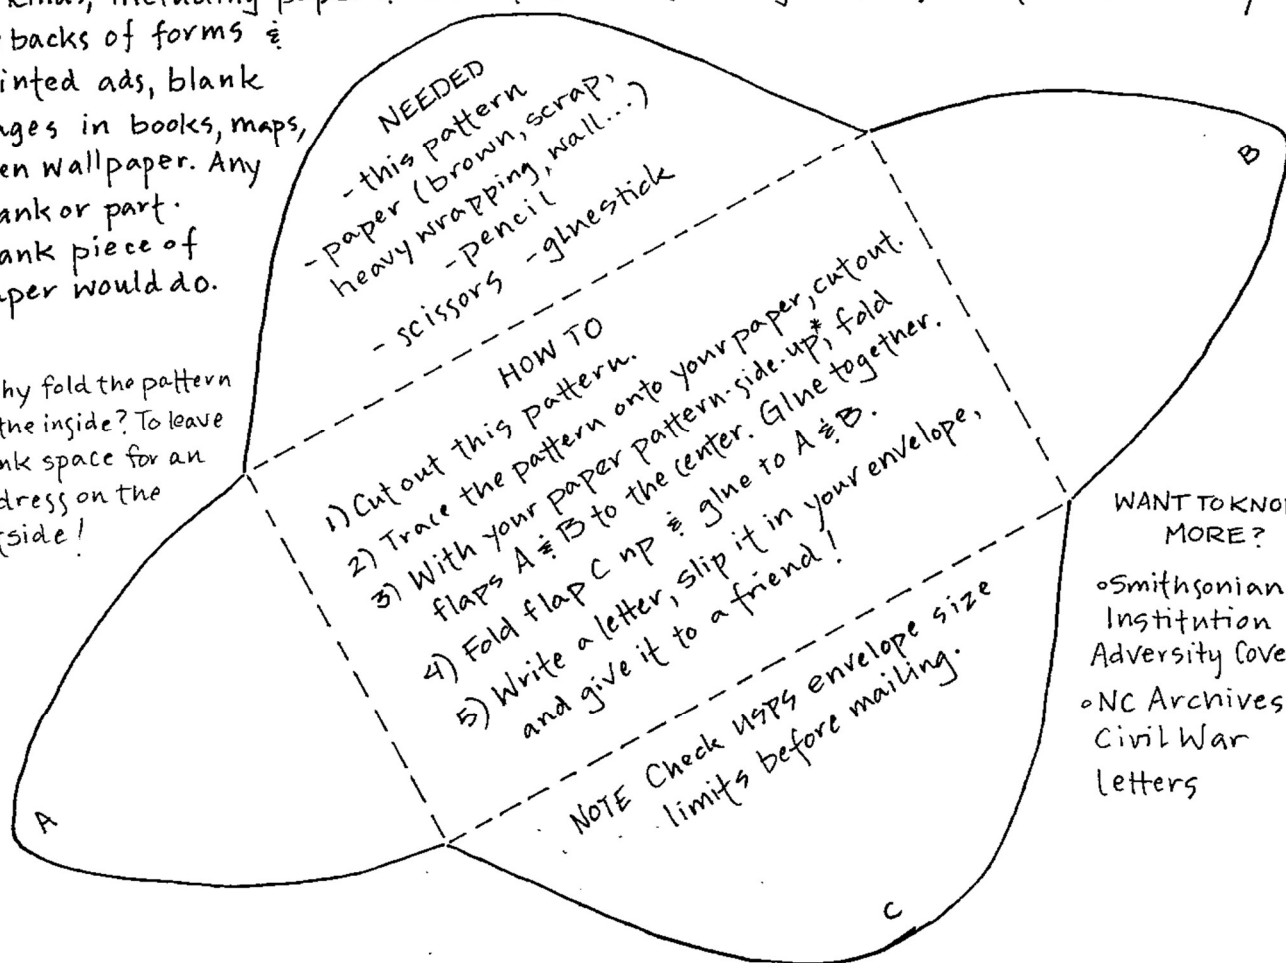 kinds, including
backs of forms &
inted ads, blank
ages in books, maps,
en wallpaper. Any
ank or part-
ank piece of
aper would do.
hy fold the pattern
the inside? To leave
nk space for an
dress on the
tside!
NEEDED
- this pattern
- paper (brown, scrap,
heavy wrapping, wall...)
- pencil
- scissors - gluestick
HOW TO
1) Cut out this pattern.
2) Trace the pattern onto your paper, cut out.
3) With your paper pattern-side-up*, fold
flaps A & B to the center. Glue together.
4) Fold flap C up & glue to A & B.
5) Write a letter, slip it in your envelope,
and give it to a friend!
NOTE Check USPS envelope size
limits before mailing.
A
B
C
WANT TO KNO
MORE?
○ Smithsonian
Institution
Adversity Cove
○ NC Archives
Civil War
letters